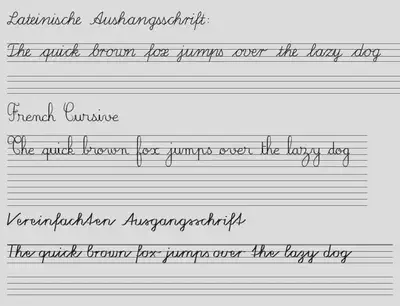 Lateinische Aushangsschrift:
The quick brown fox jumps over the lazy dog
French Cursive
The quick brown fox jumps over the lazy dog
Vereinfachten Ausgangsschrift
The quick brown fox jumps over the lazy dog